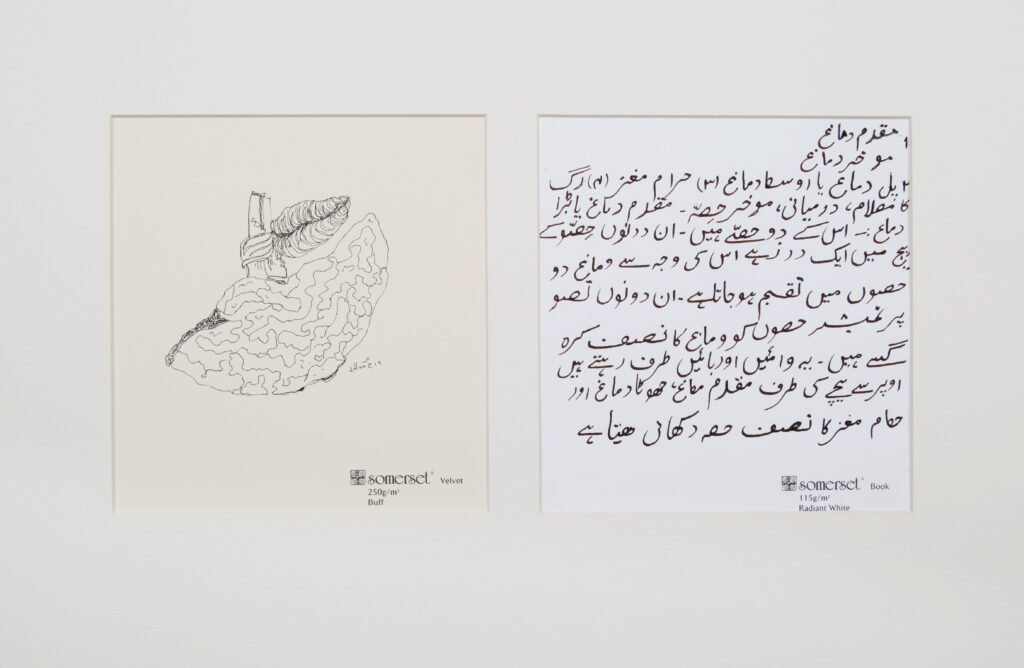 somerset® Velvet
250g/m²
Buff
۱ مقدم دماغ
موخر دماغ
۲ پل دماغ یا اوسط دماغ (۳) حرام مغز (۴) رگ
کا مقدم، درمیانی، موخر حصّہ ۔ مقدم دماغ یا بڑا
دماغ :۔ اس کے دو حصّے ہیں ۔ ان دونوں حِصّوں کے
بیچ میں ایک درز ہے اس کی وجہ سے دماغ دو
حصوں میں تقسیم ہوجاتا ہے ۔ ان دونوں
حصوں کو دماغ کا نصف کرہ
ہیں ۔ یہ دائیں اور بائیں طرف رہتے ہیں
اوپر سے نیچے کی طرف مقدم دماغ، چھوٹا دماغ اور
مغز کا نصف حصہ دکھائی ہے
somerset® Book
115g/m²
Radiant White